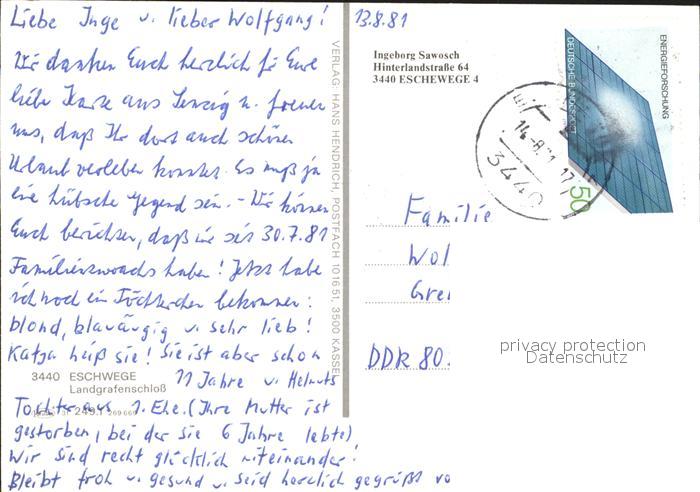 Liebe Inge u. lieber Wolfgang!
Wir danken Euch herzlich für Eure
liebe Karte aus u. freuen
uns, daß Ihr dort auch schönen
Urlaub verleben konntet. Es muß ja
eine hübsche Gegend sein. - Wir können
Euch berichten, daß wir seit 30.7.81
Familienzuwachs haben! Jetzt habe
ich noch ein Töchterchen bekommen:
blond, blauäugig u. sehr lieb!
Katja heißt sie! Sie ist aber schon
11 Jahre u. Helmuts
Tochter aus 1. Ehe. (Ihre Mutter ist
gestorben, bei der sie 6 Jahre lebte)
Wir sind recht glücklich miteinander!
Bleibt froh u. gesund u. seid herzlich gegrüßt vo
3440 ESCHWEGE
Landgrafenschloß
VERLAG: HANS HENDRICH, POSTFACH 101651, 3500 KASSEL
13.8.81
Ingeborg Sawosch
Hinterlandstraße 64
3440 ESCHEWEGE 4
ENERGIEFORSCHUNG
DEUTSCHE BUNDESPOST
50
14.-8.81.17
3440
Familie
Wol
Gre
DDR 80
privacy protection
Datenschutz